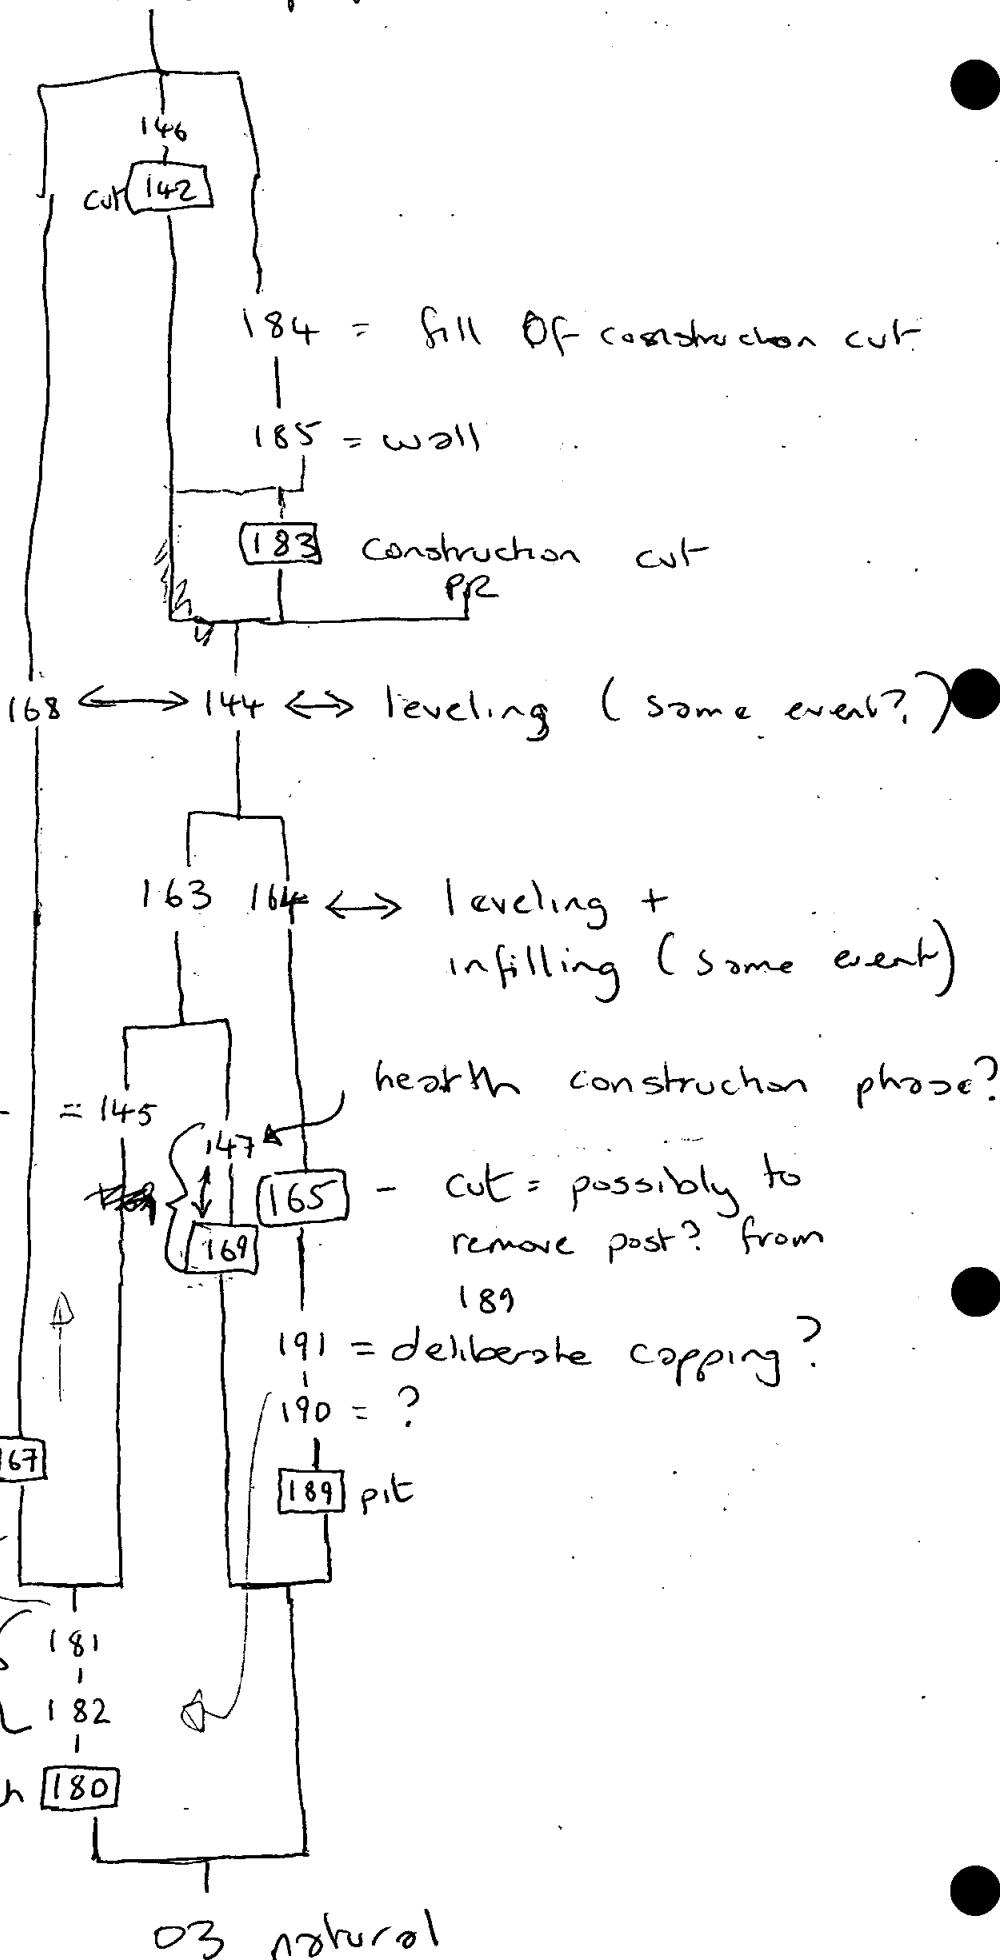 146
cut 142
184 = fill Of construction cut
185 = wall
183 construction cut
PR
168 ↔ 144 ↔ leveling (same event?)
163 164 ↔ leveling +
infilling (same event)
hearth construction phase?
= 145
147
165 - cut = possibly to
169 remove post? from
189
191 = deliberate capping?
190 = ?
167
189 pit
181
182
h 180
03 natural